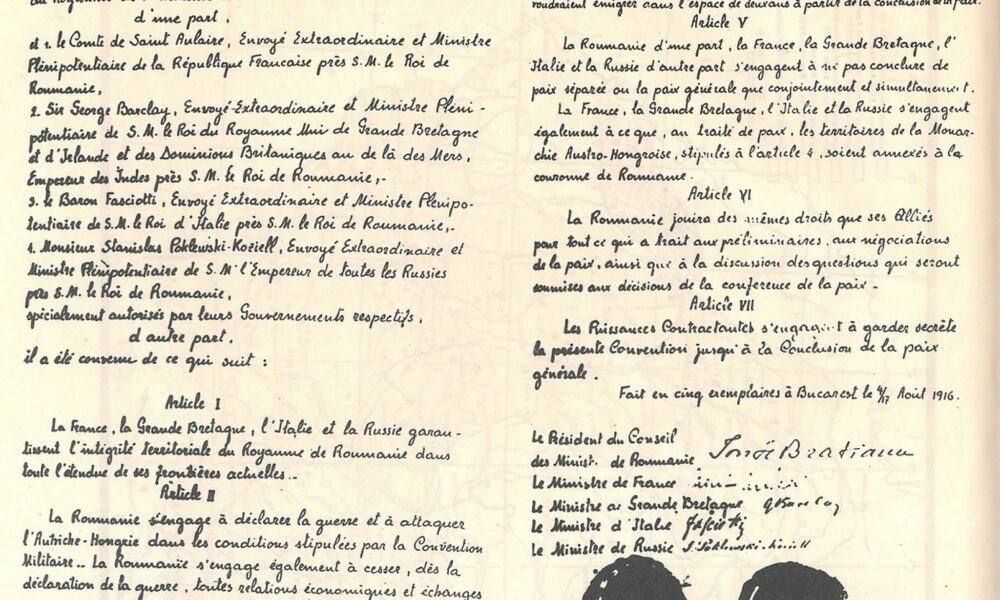 d'une part,
et 1. le Comte de Saint Aulaire, Envoyé Extraordinaire et Ministre
Plénipotentiaire de la République Francaise près S.M. le Roi de
Roumanie,
2. Sir George Barclay, Envoyé-Extraordinaire et Ministre Pléni-
potentiaire de S.M. le Roi du Royaume Uni de Grande Bretagne
et d'Irlande et des Dominions Britaniques au de là des Mers,
Empereur des Indes près S.M. le Roi de Roumanie,-
3. le Baron Fasciotti, Envoyé Extraordinaire et Ministre Plénipo-
tentiaire de S.M. le Roi d'Italie près S.M. le Roi de Roumanie,-
4. Monsieur Stanislas Poklewski-Koziell, Envoyé Extraordinaire et
Ministre Plénipotentiaire de S.M. l'Empereur de toutes les Russies
près S.M. le Roi de Roumanie,
spécialement autorisés par leurs Gouvernements respectifs,
d'autre part,
il a été convenu de ce qui suit :
Article I
La France, la Grande Bretagne, l'Italie et la Russie garan-
tissent l'intégrité territoriale du Royaume de Roumanie dans
toute l'étendue de ses frontières actuelles.-
Article II
La Roumanie s'engage à déclarer la guerre et à attaquer
l'Autriche-Hongrie dans les conditions stipulées par la Convention
Militaire.- La Roumanie s'engage également à cesser, dès la
déclaration de la guerre, toutes relations économiques et échanges
voudraient émigrer dans l'espace de deux ans à partir de la conclusion de la paix.
Article V
La Roumanie d'une part, la France, la Grande Bretagne, l'
Italie et la Russie d'autre part s'engagent à ne pas conclure de
paix séparée ou la paix générale que conjointement et simultanement.
La France, la Grande Bretagne, l'Italie et la Russie s'engagent
également à ce que, au traité de paix, les territoires de la Monar-
chie Austro-Hongroise, stipulés à l'article 4, soient annexés à la
couronne de Roumanie.
Article VI
La Roumanie jouira des mêmes droits que ses Alliés
pour tout ce qui a trait aux préliminaires, aux négociations
de la paix, ainsi que à la discussion des questions qui seront
soumises aux décisions de la conference de la paix.-
Article VII
Les Puissances Contractantes s'engagent à garder secrète
la présente Convention jusqu'à la Conclusion de la paix
générale.
Fait en cinq exemplaires à Bucarest le 4/17 Août 1916.
Le Président du Conseil
des Minist. de Roumanie
Le Ministre de France
Le Ministre de Grande Bretagne
Le Ministre d'Italie
Le Ministre de Russie